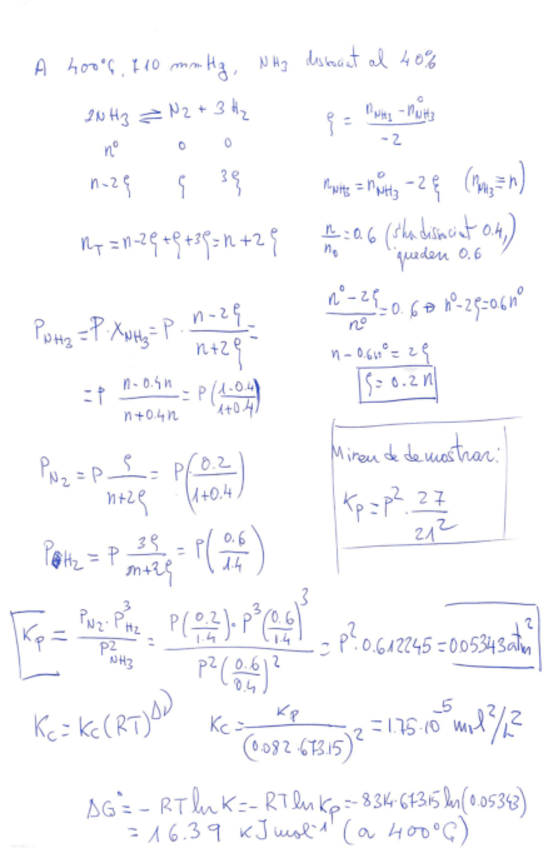 A 400°C, 710 mmHg, NH3 dissociat al 40%
2NH3 ⇌ N2 + 3H2
n° 0 0
n-2ξ ξ 3ξ
nT = n-2ξ+ξ+3ξ = n+2ξ
ξ = (nNH3 - n°NH3)/-2
nNH3 = n°NH3 - 2ξ (nNH3 ≡ n)
n/n0 = 0.6 (s'ha dissociat 0.4,)
queden 0.6
(n°-2ξ)/n° = 0.6 ⇒ n°-2ξ=0.6n°
n-0.6n° = 2ξ
ξ = 0.2n
PNH3 = P·XNH3 = P·(n-2ξ)/(n+2ξ) =
= P (n-0.4n)/(n+0.4n) = P((1-0.4)/(1+0.4))
PN2 = P ξ/(n+2ξ) = P(0.2/(1+0.4))
PH2 = P 3ξ/(n+2ξ) = P(0.6/1.4)
Miren de demostrar:
Kp = P²·27/21²
Kp = (PN2·P³H2)/P²NH3 = (P(0.2/1.4)·P³(0.6/1.4)³)/(P²(0.6/0.4)²) = P²·0.612245 = 0.05343 atm²
Kc = Kc(RT)^Δν
Kc = Kp/(0.082·673.15)² = 1.75·10⁻⁵ mol²/L²
ΔG° = -RT ln K = -RT ln Kp = -8.314·673.15 ln(0.05343)
= 16.39 kJ mol⁻¹ (a 400°C)